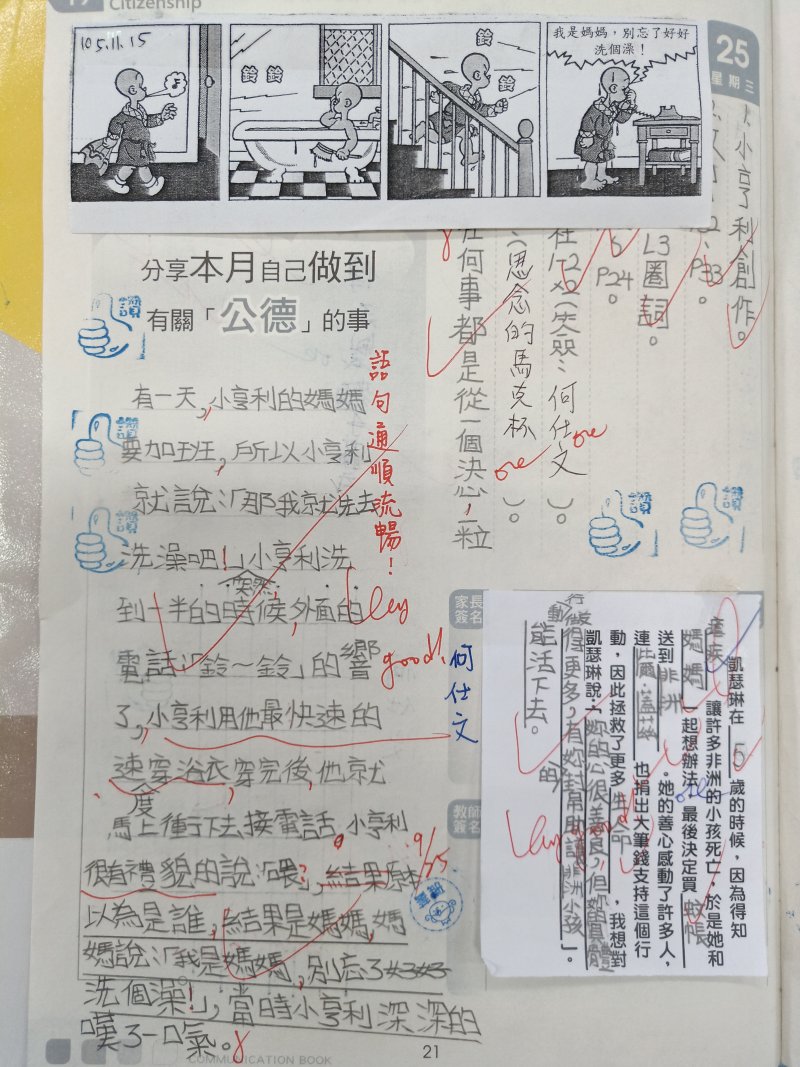 Citizenship
105.11.15
鈴
鈴
鈴
鈴
我是媽媽，別忘了好好
洗個澡！
25
星期三
1.小亨利創作。
L3圈詞。
P24。
(思念的馬克杯)。
何仕文
任何事都是從一個決心，一粒
分享本月自己做到
有關「公德」的事
讚
讚
讚
讚
讚
語句通順流暢！
有一天，小亨利的媽媽
要加班，所以小亨利
就說：「那我就先去
洗澡吧！」小亨利洗
突然
到一半的時候，外面的
電話「鈴～鈴」的響
了，小亨利用他最快速的
速穿浴衣穿完後，他就
度
馬上衝下去接電話，小亨利
很有禮貌的說：「喂？」，結果原本
以為是誰，結果是媽媽，媽
媽說：「我是媽媽，別忘了好好
洗個澡！」，當時小亨利深深的
嘆了一口氣。
good!
9/25
家長
簽名
何仕文
教師
簽名
凱瑟琳在 5 歲的時候，因為得知
瘧疾 讓許多非洲的小孩死亡，於是她和
媽媽 一起想辦法，最後決定買 蚊帳
送到 非洲 。她的善心感動了許多人，
連 比爾蓋茲 也捐出大筆錢支持這個行
動，因此拯救了更多 生命 ，我想對
凱瑟琳說：「妳的心很善良，但妳實體
行動做得更多，有妳的幫助讓非洲小孩
能活下去。」。
COMMUNICATION BOOK
21